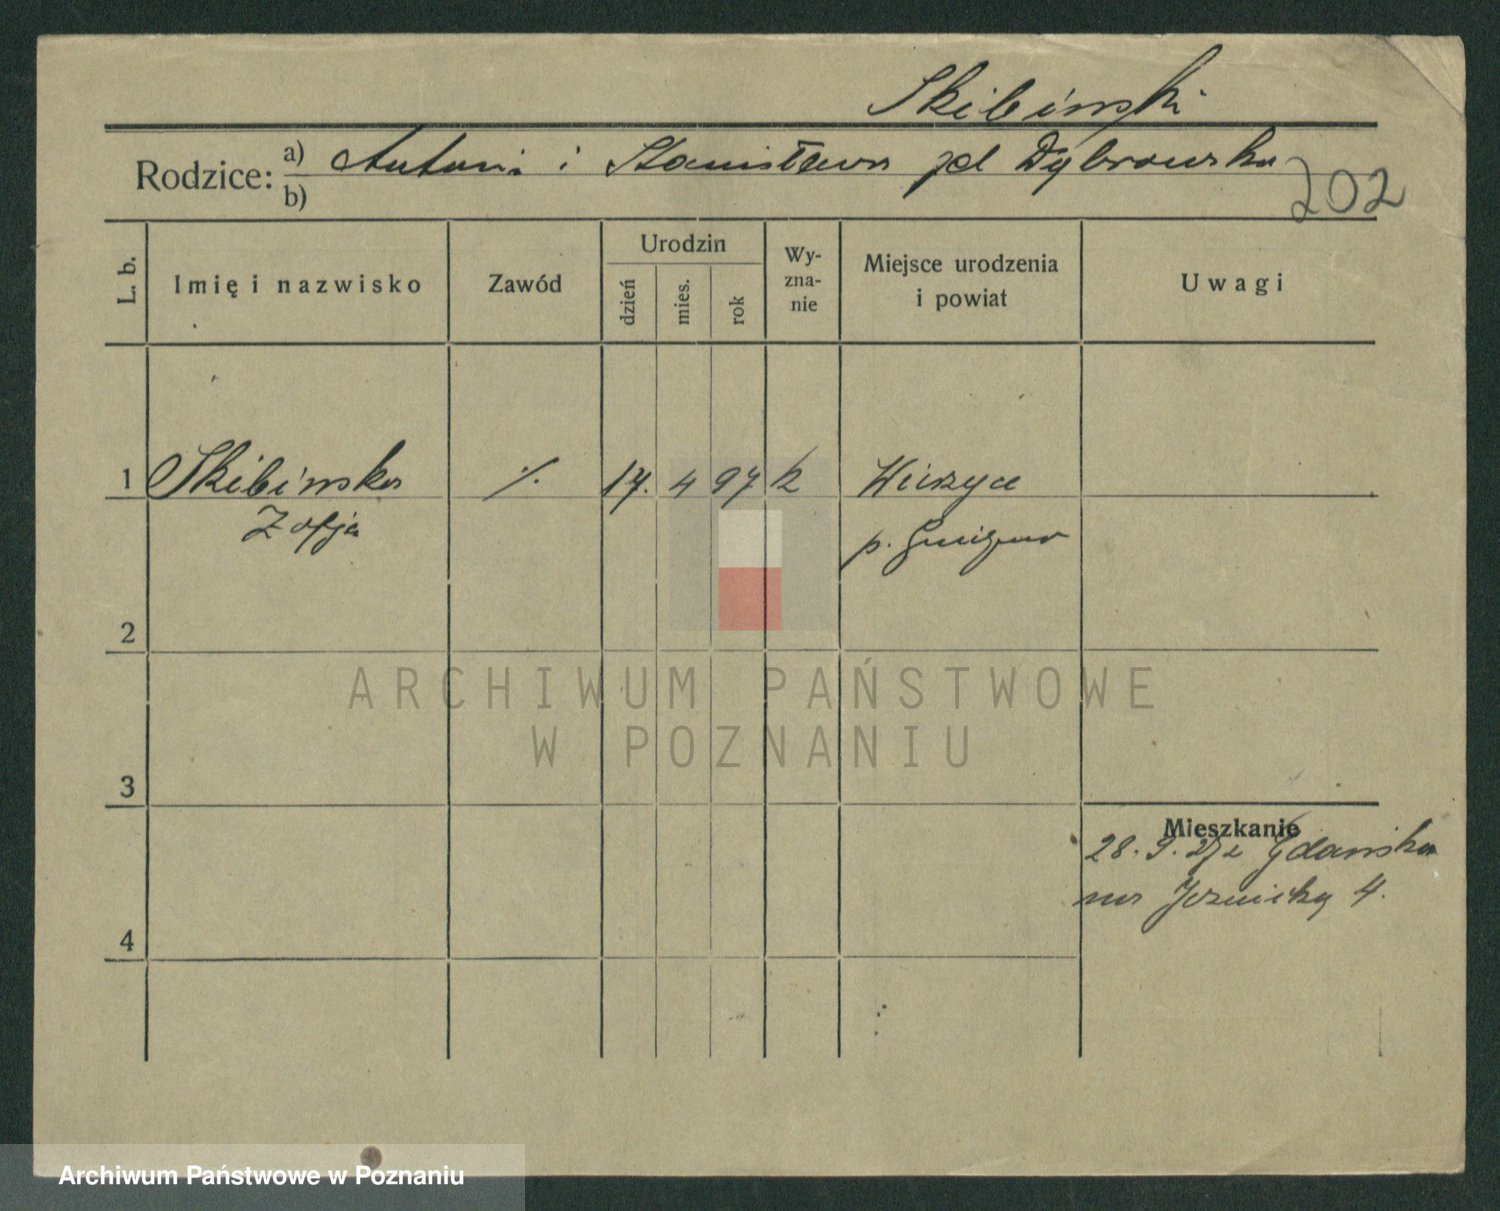 Skibiński
Rodzice: a) Antoni i Stanisława zd Dybrowska
b)
202
L. b.
Imię i nazwisko
Zawód
Urodzin
dzień
mies.
rok
Wy-
zna-
nie
Miejsce urodzenia
i powiat
Uwagi
1 Skibińska ./. 17. 4 97 k Wierzyce
Zofja p. Gniezno
2
ARCHIWUM PAŃSTWOWE
W POZNANIU
3
Mieszkanie
28. 9. z Gdańska
4.
4
Archiwum Państwowe w Poznaniu